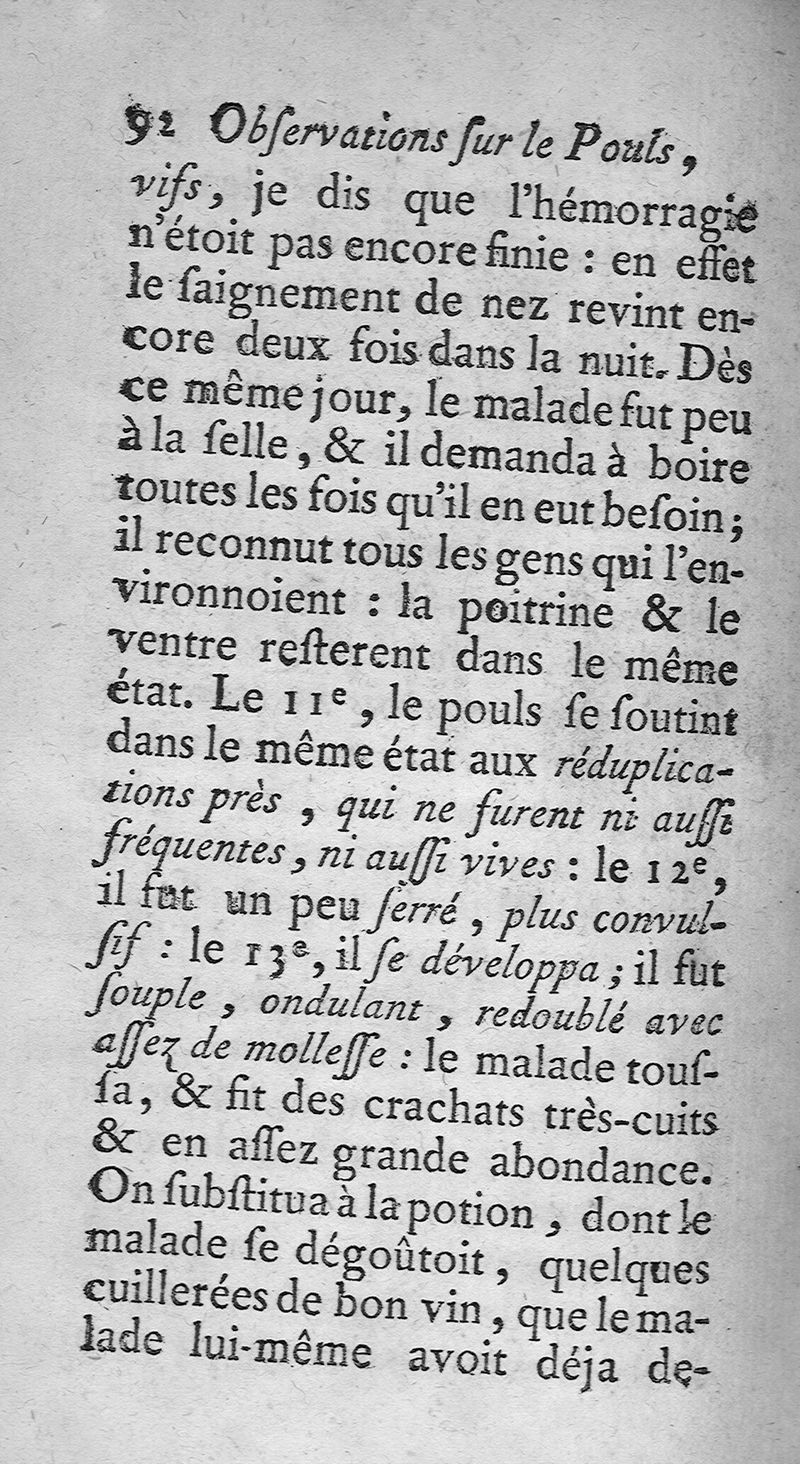 92 Obſervations ſur le Pouls,
vifs, je dis que l'hémorragie
n'étoit pas encore finie : en effet
le ſaignement de nez revint en-
core deux fois dans la nuit. Dès
ce même jour, le malade fut peu
à la ſelle, & il demanda à boire
toutes les fois qu'il en eut beſoin;
il reconnut tous les gens qui l'en-
vironnoient : la poitrine & le
ventre reſterent dans le même
état. Le 11e, le pouls ſe ſoutint
dans le même état aux réduplica-
tions près, qui ne furent ni auſſi
fréquentes, ni auſſi vives : le 12e,
il fut un peu ſerré, plus convul-
ſif : le 13e, il ſe développa; il fut
ſouple, ondulant, redoublé avec
aſſez de molleſſe : le malade touſ-
ſa, & fit des crachats très-cuits
& en aſſez grande abondance.
On ſubſtitua à la potion, dont le
malade ſe dégoûtoit, quelques
cuillerées de bon vin, que le ma-
lade lui-même avoit déja de-